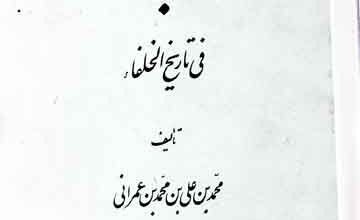 فی تاریخ الخلفاء
تألیف
محمد بن علی بن محمد بن عمرانی